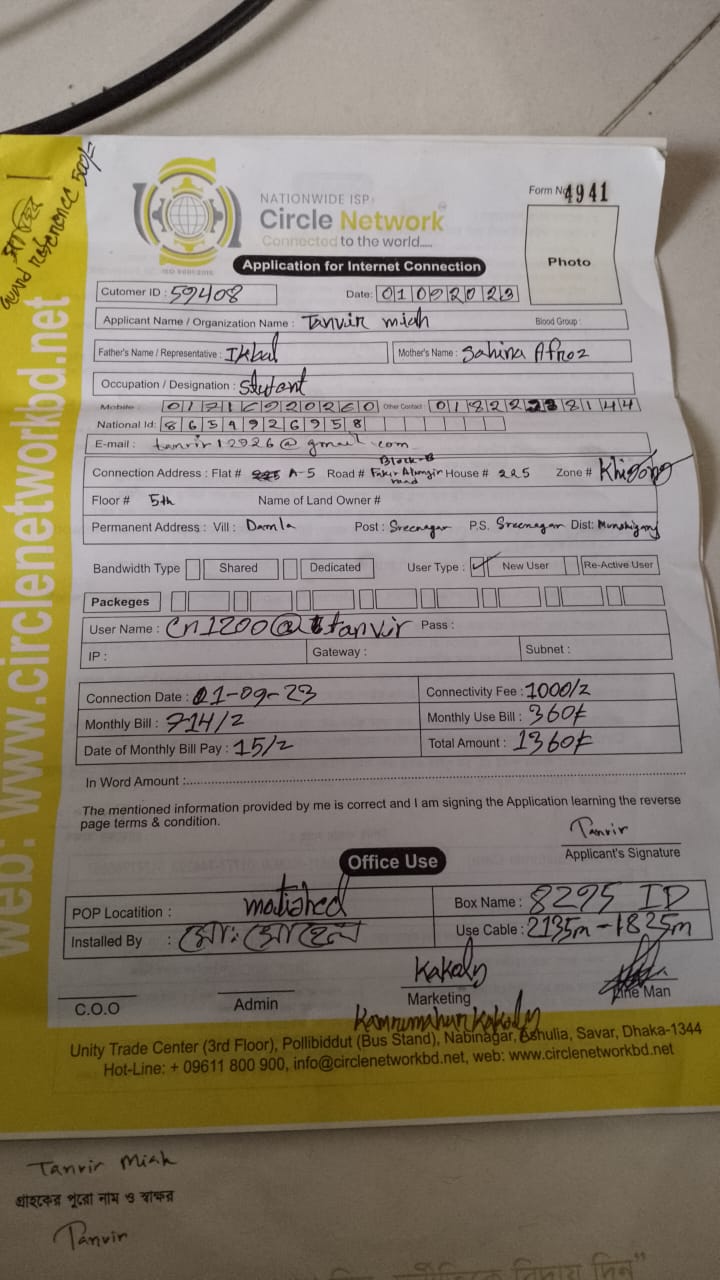 guard reference 500/-
Form No 4941
NATIONWIDE ISP
Circle Network
Connected to the world.....
ISO 9001:2015
Photo
Application for Internet Connection
Cutomer ID : 59408 Date: 01092023
Applicant Name / Organization Name : Tanvir miah Blood Group :
Father's Name / Representative : Ikbal Mother's Name : Sahina Afroz
Occupation / Designation : Stutant
Mobile : 01716920260 Other Contact : 01822238144
National Id: 8654926958
E-mail : tanvir12926@gmail.com
Connection Address : Flat # A-5 Road # Block-B Fakir Alamgir road House # 225 Zone # Khigong
Floor # 5th Name of Land Owner #
Permanent Address : Vill : Damla Post : Sreenagar P.S. Sreenagar Dist: Munshigong
Bandwidth Type Shared Dedicated User Type : New User Re-Active User
Packeges
User Name : Cn1200@tanvir Pass :
IP : Gateway : Subnet :
Connection Date : 01-09-23 Connectivity Fee : 1000/=
Monthly Bill : 714/= Monthly Use Bill : 360/=
Date of Monthly Bill Pay : 15/= Total Amount : 1360/=
In Word Amount :
The mentioned information provided by me is correct and I am signing the Application learning the reverse
page terms & condition.
Tanvir
Applicant's Signature
Office Use
POP Locatition : Box Name : 8295 ID
Installed By : মো: সোহেল Use Cable : 2135m-1825m
Kakoly
C.O.O Admin Marketing Line Man
Kamrunnahar Kakoly
Unity Trade Center (3rd Floor), Pollibiddut (Bus Stand), Nabinagar, Ashulia, Savar, Dhaka-1344
Hot-Line: + 09611 800 900, info@circlenetworkbd.net, web: www.circlenetworkbd.net
web: www.circlenetworkbd.net
Tanvir Miah
গ্রাহকের পুরো নাম ও স্বাক্ষর
Tanvir